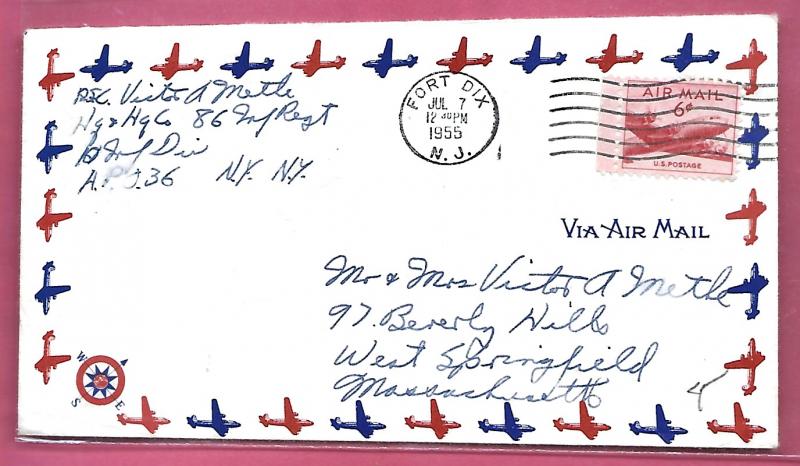 Pvt. Victor A Metle
Hq & Hq Co 86 Inf Regt
10 Inf Div
A.P.O. 36 N.Y. N.Y.
FORT DIX
JUL 7
12 30 PM
1955
N. J.
AIR MAIL
6¢
U.S. POSTAGE
VIA AIR MAIL
Mr & Mrs Victor A Metle
97 Beverly Hills
West Springfield
Massachusetts
W
E
S